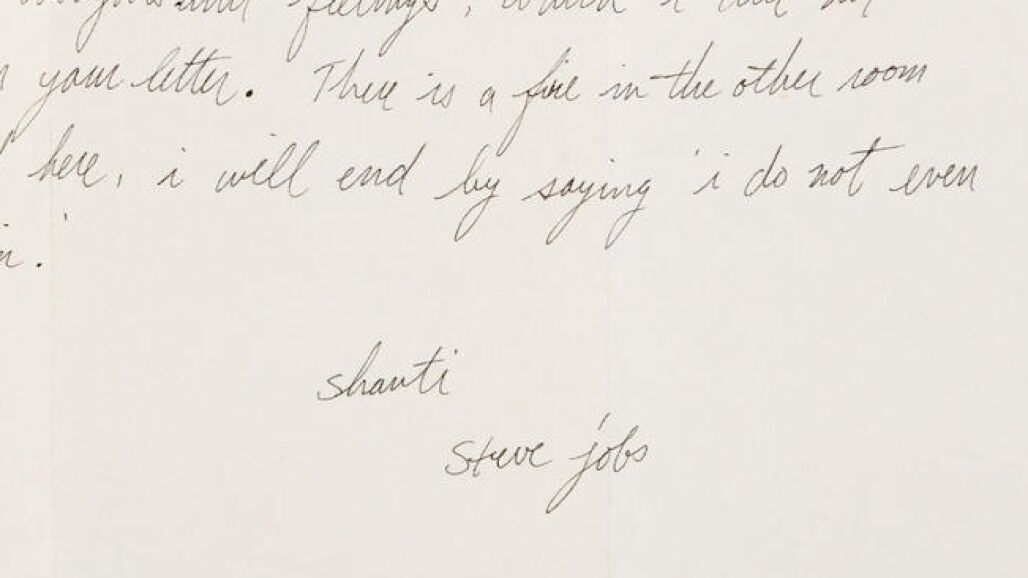 feelings, which i
your letter. There is a fire in the other room
here, i will end by saying 'i do not even
shanti
steve jobs